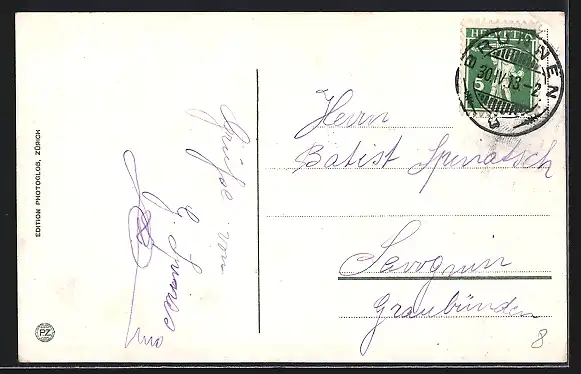 EDITION PHOTOGLOB, ZÜRICH
PZ
Grüsse von
HELVETIA
5
BRUNNEN
30.IV.13.-2
Herrn
Batist Spinatsch
Savognin
Graubünden
8